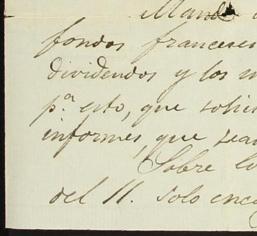 Mando
fondos franceses
dividendos y los
pª esto, que
informes, que sean
Sobre lo
del 11. Solo